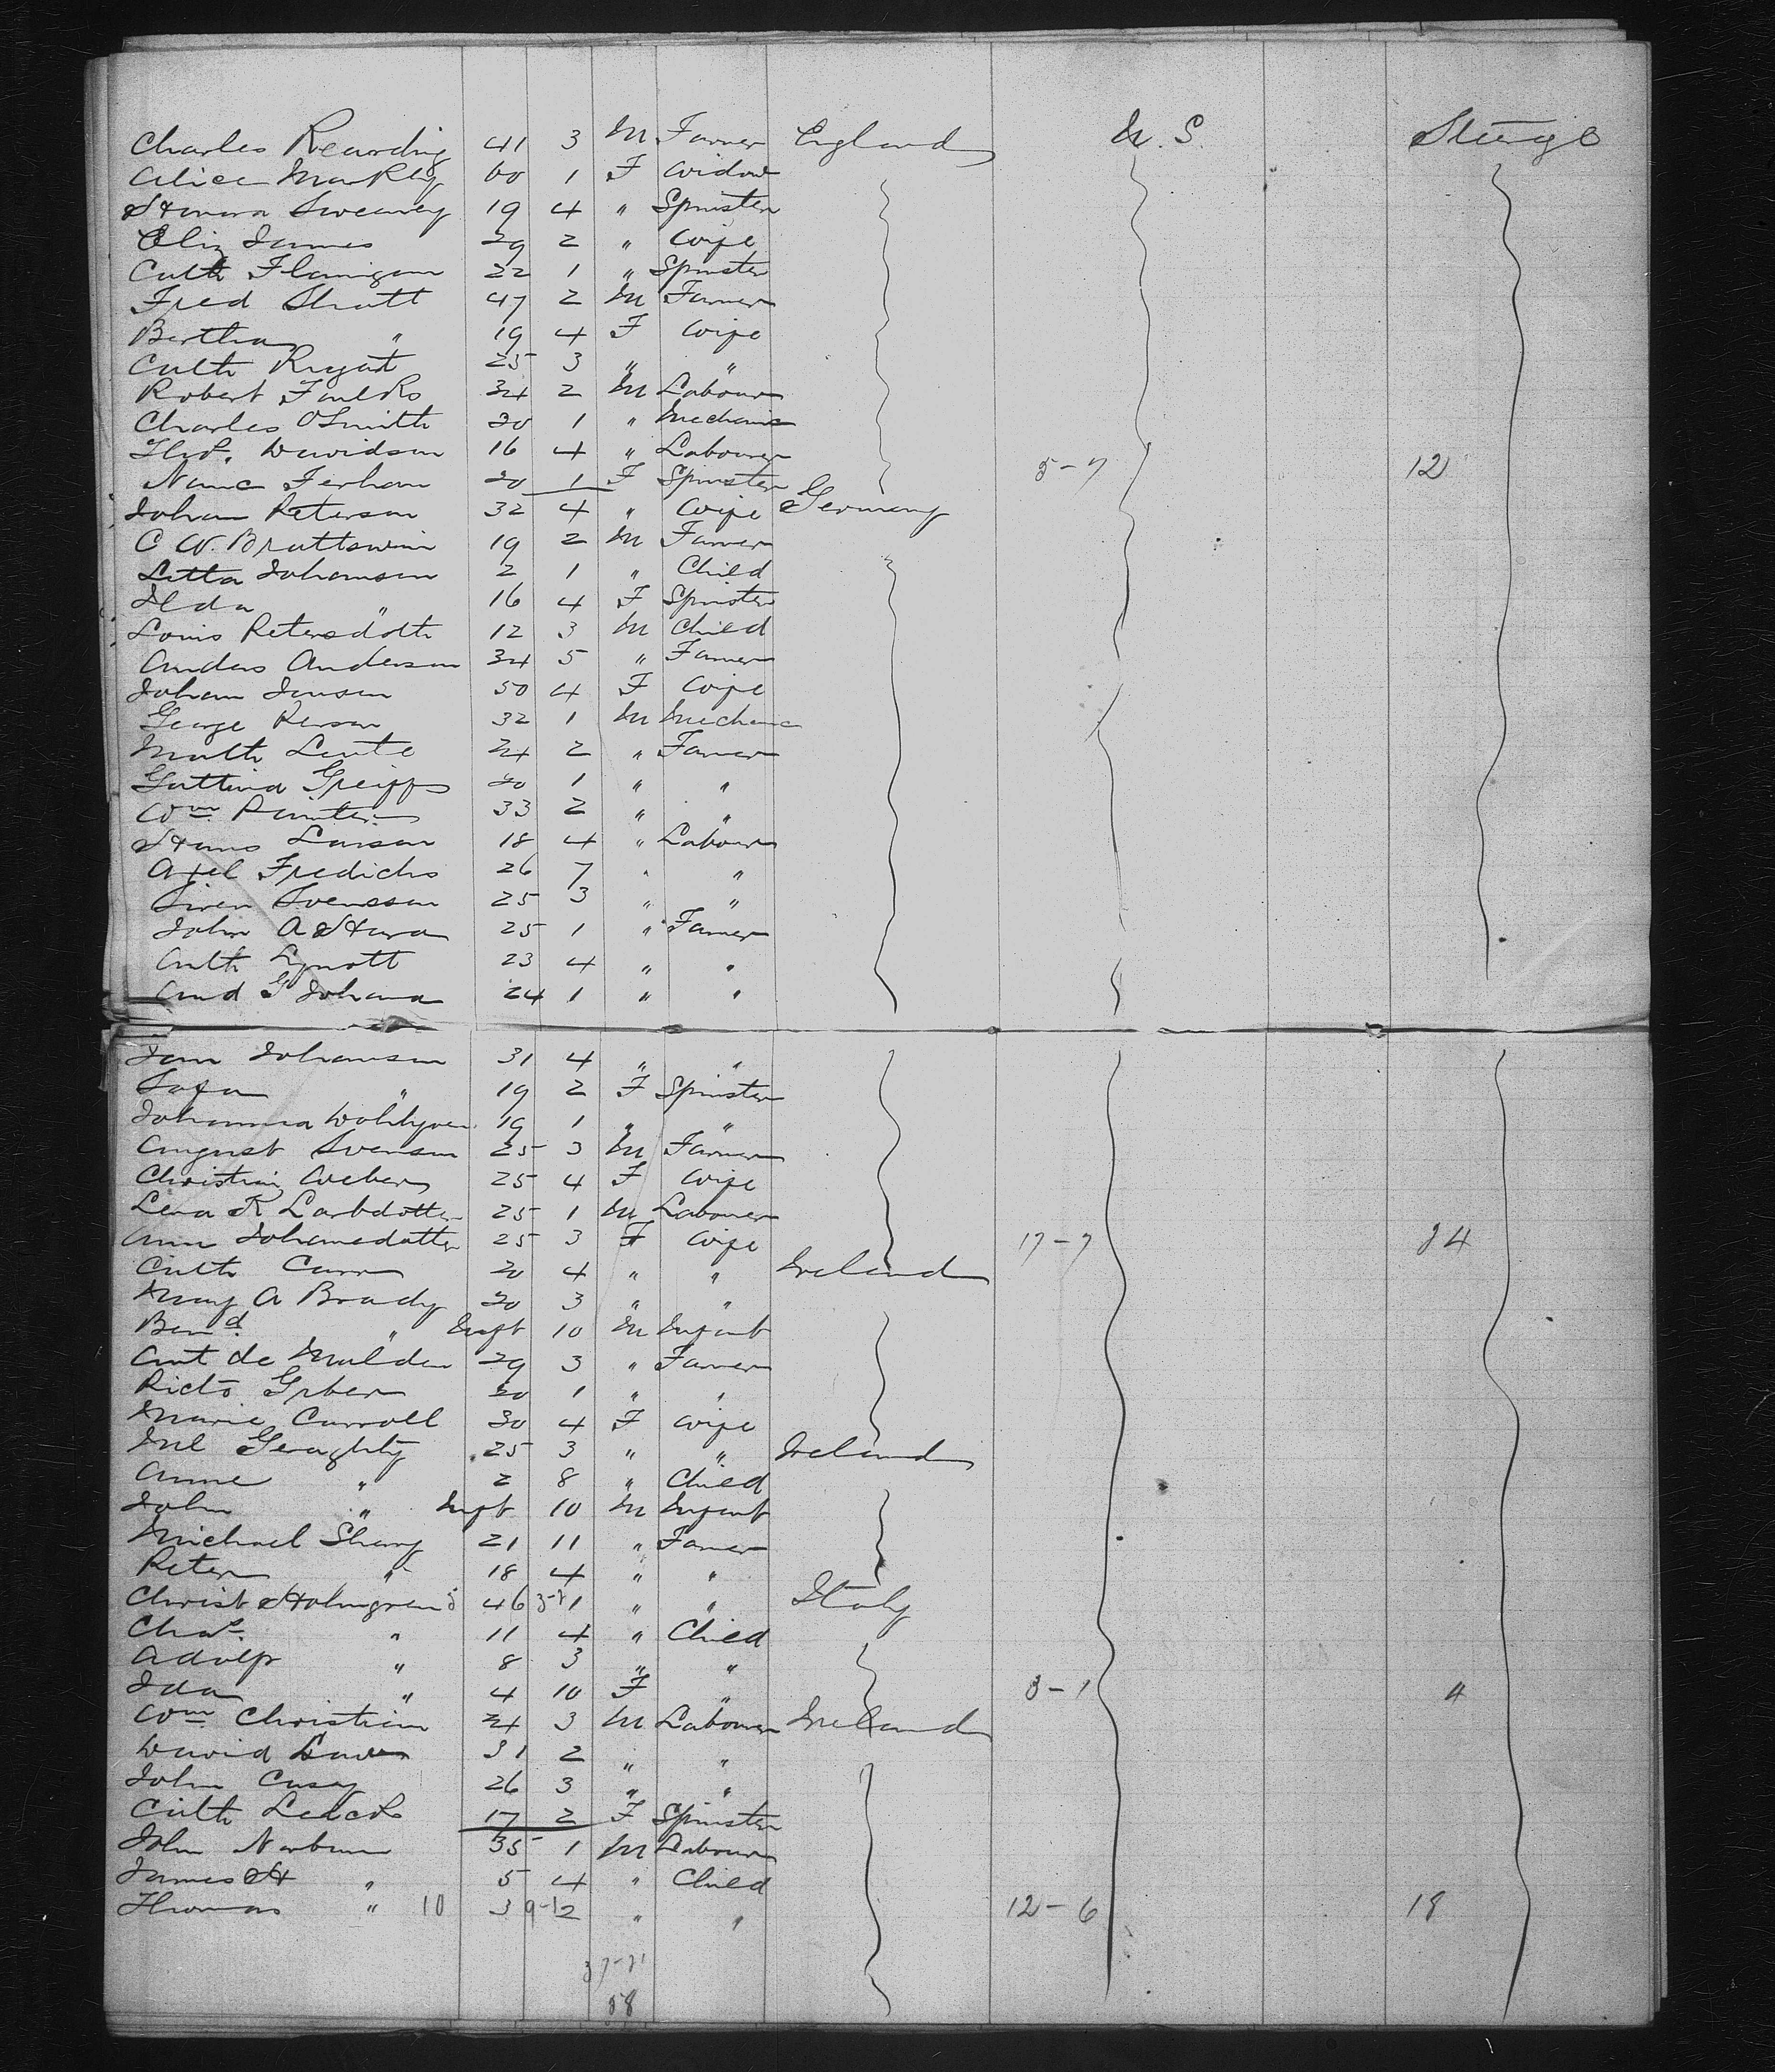 Charles Rearding 41 3 M Farmer England U.S. Steerge
Alice Markly 60 1 F Widow
Honora Sweeney 19 4 " Spinster
Eliz James 29 2 " Wife
Cath Flanigan 22 1 " Spinster
Fred Shutt 47 2 M Farmer
Bertha " 19 4 F Wife
Cath 25 3 " "
Robert Faulks 34 2 M Labourer
Charles Smith 30 1 " Mechanic
Thos. Davidson 16 4 " Labourer 5-7 12
1 F Spinster
Johan Peterson 32 4 " Wife Germany
C W. 19 2 M Farmer
Letta Johanson 2 1 " Child
Ilda " 16 4 F Spinster
Louis Petersdotter 12 3 M Child
Anders Anderson 34 5 " Farmer
Johan Jensen 50 4 F Wife
George Person 32 1 M Mechanic
Math 24 2 " Farmer
1 " "
Wm 33 2 " "
Hans Larson 18 4 " Labourer
Axel Fredichs 26 7 " "
Svenson 25 3 " "
John A 25 1 " Farmer
Cath Lynott 23 4 " "
And G Johana 24 1 " "
Johanson 31 4 " "
Sofa " 19 2 F Spinster
Johanna 19 1 " "
August Svenson 25 3 M Farmer
Christin Weber 25 4 F Wife
Lena K 25 1 M Labourer
Ann Johansdotter 25 3 F Wife 17-7 24
Cath Carr 20 4 " " Ireland
Mary A Brady 30 3 " "
Bernd " Inft 10 M Infant
Ant de Mulder 29 3 " Farmer
1 " "
Marie Carroll 30 4 F Wife
Geraghty 25 3 " " Ireland
Anne " 2 8 " Child
John " Inft 10 M Infant
Michael 21 11 " Farmer
Peter " 18 4 " "
Christ Holmgren 46 3-1 1 " " Italy
Chas. " 11 4 " Child
Adolf " 8 3 " "
Ida " 4 10 F " 3-1 4
Wm Christian 24 3 M Labourer Ireland
David 31 2 " "
John Casey 26 3 " "
Cath 17 2 F Spinster
John 35 1 M Labourer
James H " 5 4 " Child
Thomas " 10 3 9-1 2 " " 12-6 18
37-21
58